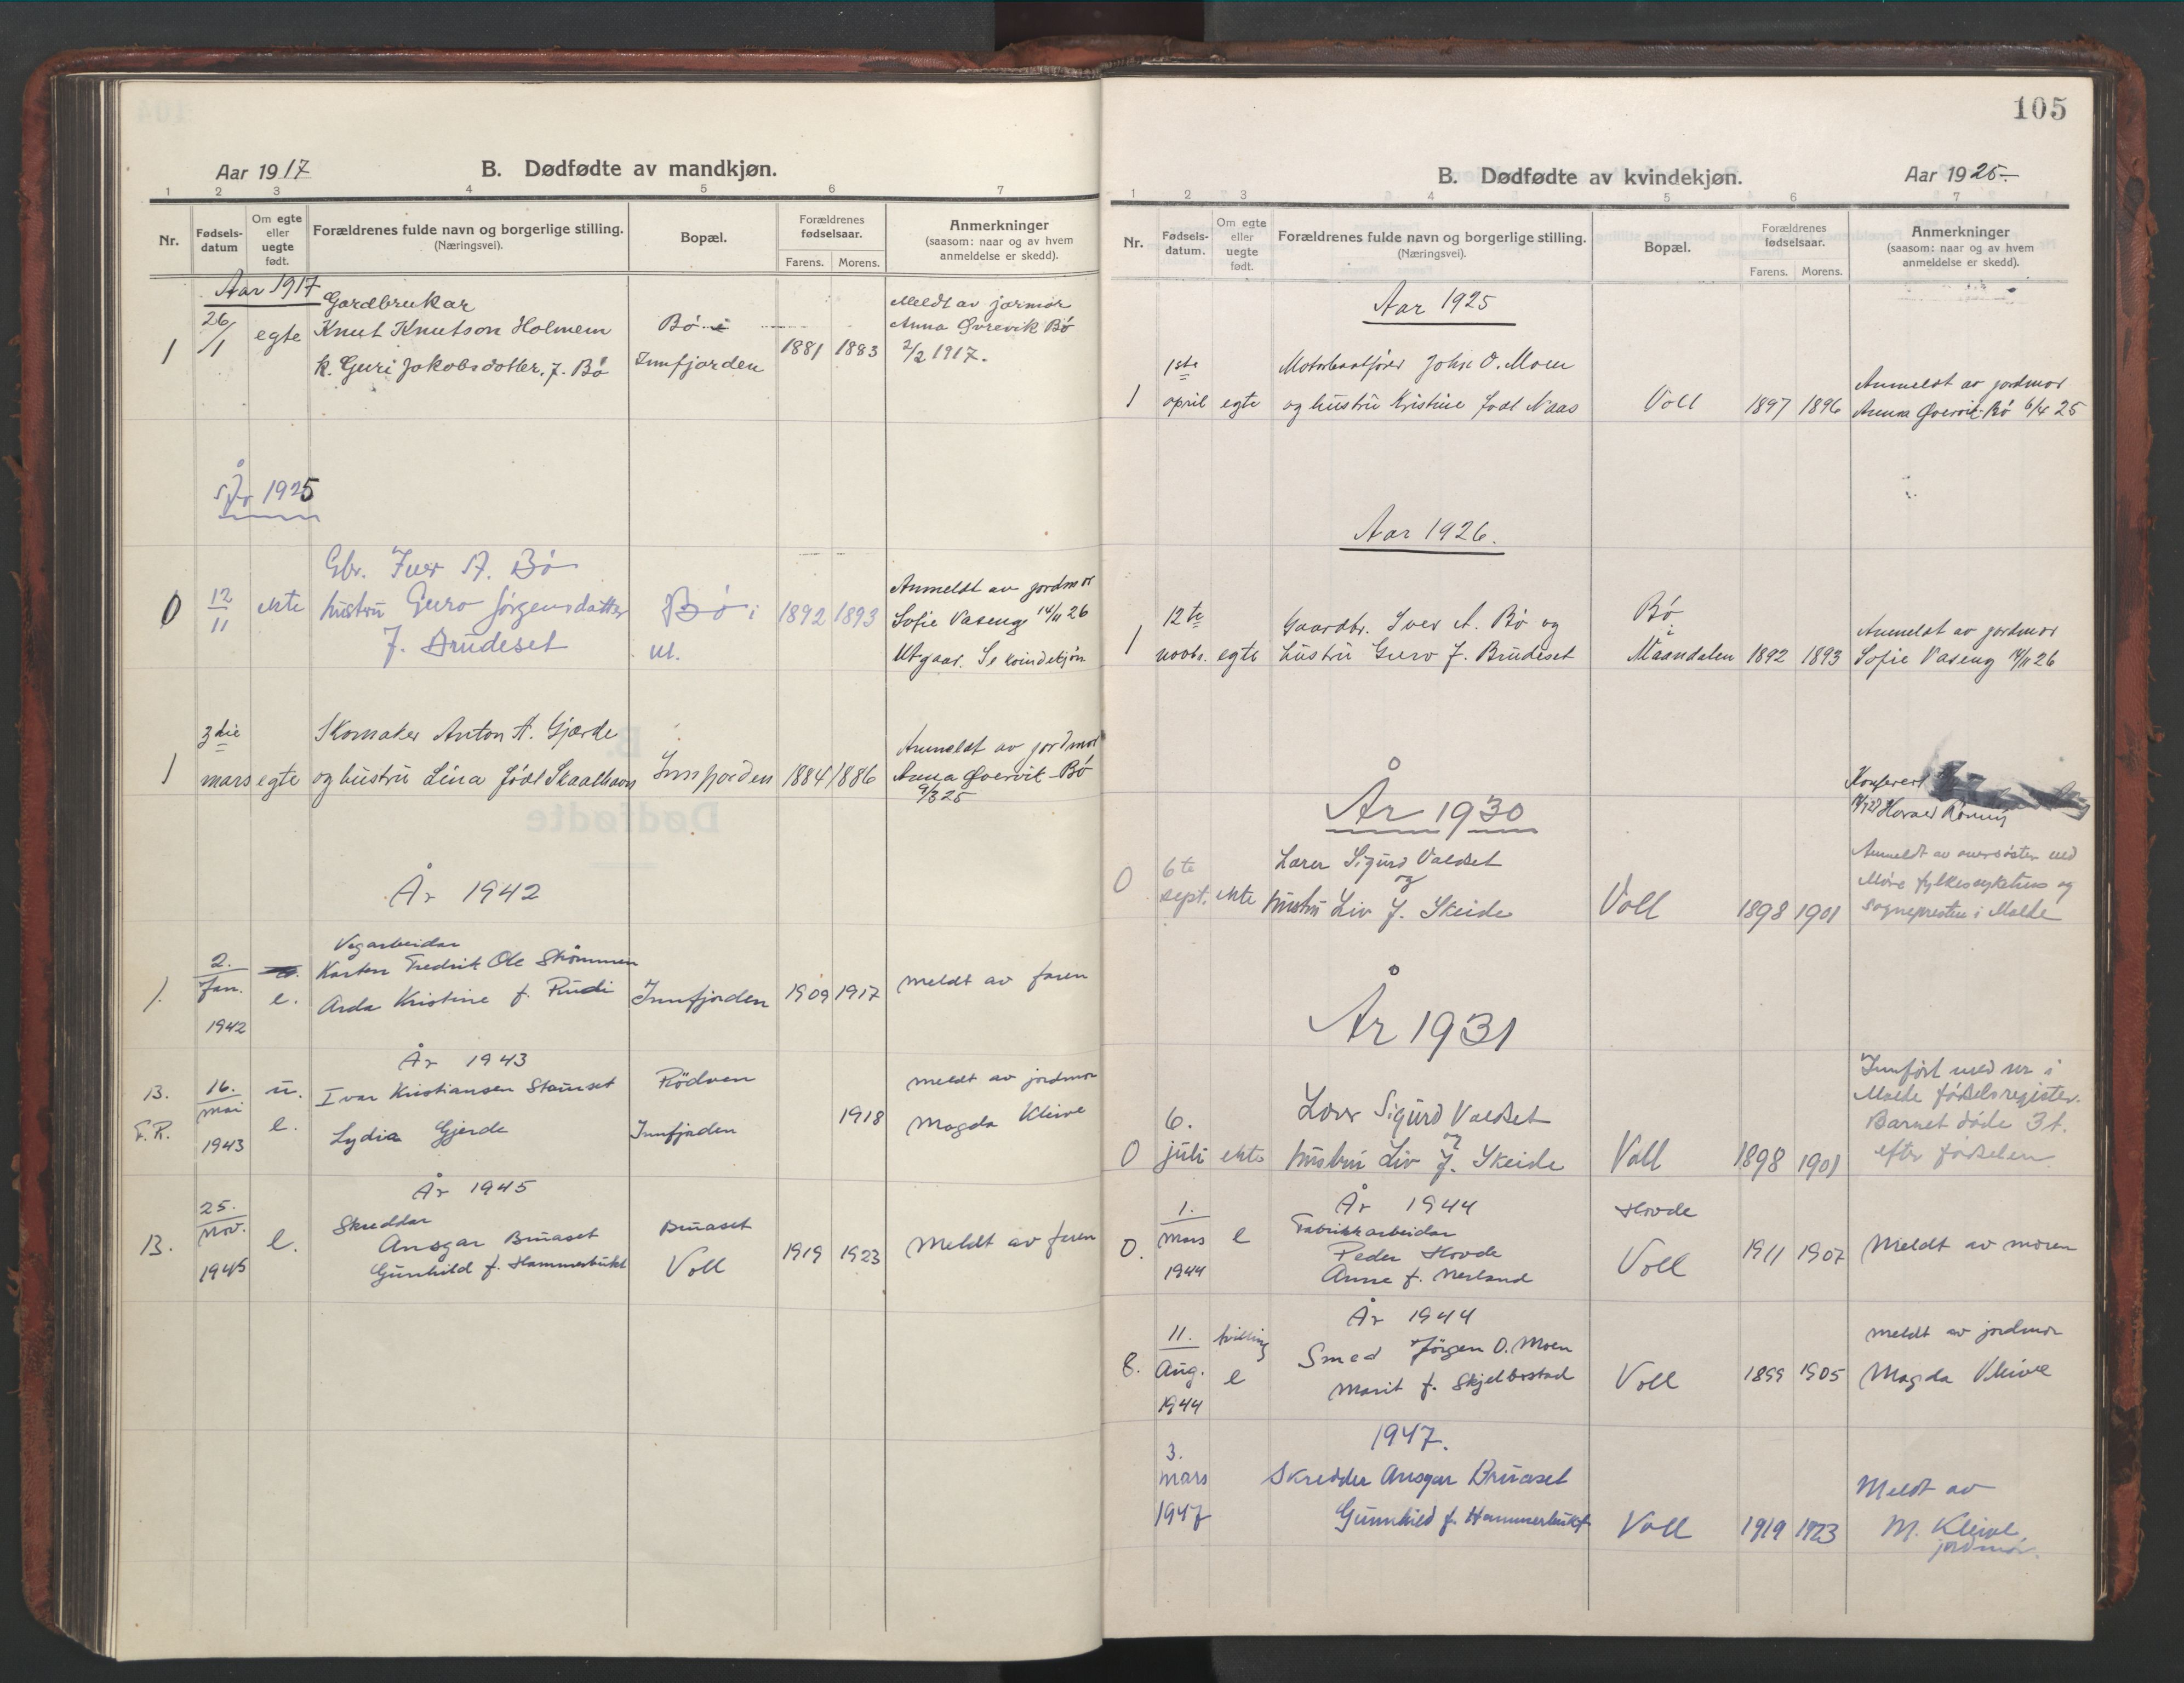 Aar 1917
B. Dødfødte av mandkjøn.
1 2 3 4 5 6 7
Nr.
Fødsels-
datum
Om egte
eller
uegte
født.
Forældrenes fulde navn og borgerlige stilling.
(Næringsvei).
Bopæl.
Forældrenes
fødselsaar.
Farens. Morens.
Anmerkninger
(saasom: naar og av hvem
anmeldelse er skedd).
Aar 1917
1
26/1
egte
Gardbrukar
Knut Knutson Holmem
k. Guri Jakobsdotter. f. Bø
Bø i
Innfjorden
1881 1883
Meldt av jormor
Anna Øvrevik Bø
2/2 1917.
År 1925
0
12
11
ekte
Gbr. Iver A. Bø
hustru Guro Jørgensdatter
f. Brudeset
Bø i
1892 1893
Anmeldt av jordmor
Sofie Vaseng 14/11 26
Utgaar. Se kvindekjøn
1
3die
mars
egte
Skomaker Anton A. Gjærde
og hustru Lina født Skaalhavn
Innfjorden
1884 1886
Anmeldt av jordmor
Anna Øvervik-Bø
9/3 25
År 1942
1.
2.
Jan.
1942
e.
Vegarbeidar
Karsten Fredrik Ole Strømmen
Arda Kristine f. Rudi
Innfjorden
1909 1917
Meldt av faren
År 1943
B.
F.R.
16.
mai
1943
u.
e.
Ivar Kristiansen Stamset
Lydia Gjerde
Rödven
Innfjorden
1918
Meldt av jordmor
Magda Kleive
År 1945
B.
25.
Nov.
1945
e.
Skreddar
Ansgar Bruaset
Gunhild f. Hammerbukt
Bruaset
Voll
1919 1923
Meldt av faren
105
B. Dødfødte av kvindekjøn.
Aar 1925.-
1 2 3 4 5 6 7
Nr.
Fødsels-
datum.
Om egte
eller
uegte
født.
Forældrenes fulde navn og borgerlige stilling.
(Næringsvei).
Bopæl.
Forældrenes
fødselsaar.
Farens. Morens.
Anmerkninger
(saasom: naar og av hvem
anmeldelse er skedd).
Aar 1925
1
1ste
april
egte
Motorbaatfører John O. Moen
og hustru Kristine født Naas
Voll
1897 1896
Anmeldt av jordmor
Anna Øvervik-Bø 6/4 25
Aar 1926.
1
12te
novbr.
egte
Gaardbr. Iver A. Bø og
hustru Guro f. Brudeset
Bø
i
Maandalen
1892 1893
Anmeldt av jordmor
Sofie Vaseng 14/11 26
Konferert
År 1930
0
6te
sept.
ekte
Lærer Sigurd Valdset
og
hustru Liv f. Skeide
Voll
1898 1901
Anmeldt av oversøster ved
Møre fylkessykehus og
sognepresten i Molde
År 1931
0
6.
juli
ekte
Lærer Sigurd Valdset
og
hustru Liv f. Skeide
Voll
1898 1901
Innført med nr i
Molde fødselsregister.
Barnet døde 3 t.
efter fødselen
År 1944
0.
1.
Mars
1944
e
Fabrikkarbeidar
Peder Hovde
Anne f. Nerland
Hovde
Voll
1911 1907
Meldt av moren
År 1944
8.
11.
Aug.
1944
tvilling
e
Smed Jörgen O. Moen
Marit f. Skjelbostad
Voll
1899 1905
Meldt av jordmor
Magda Kleive
1947.
3.
mars
1947
Skredder Ansgar Bruaset
Gunnhild f. Hammerbukt
Voll
1919 1923
Meldt av
M. Kleive,
jordmor.